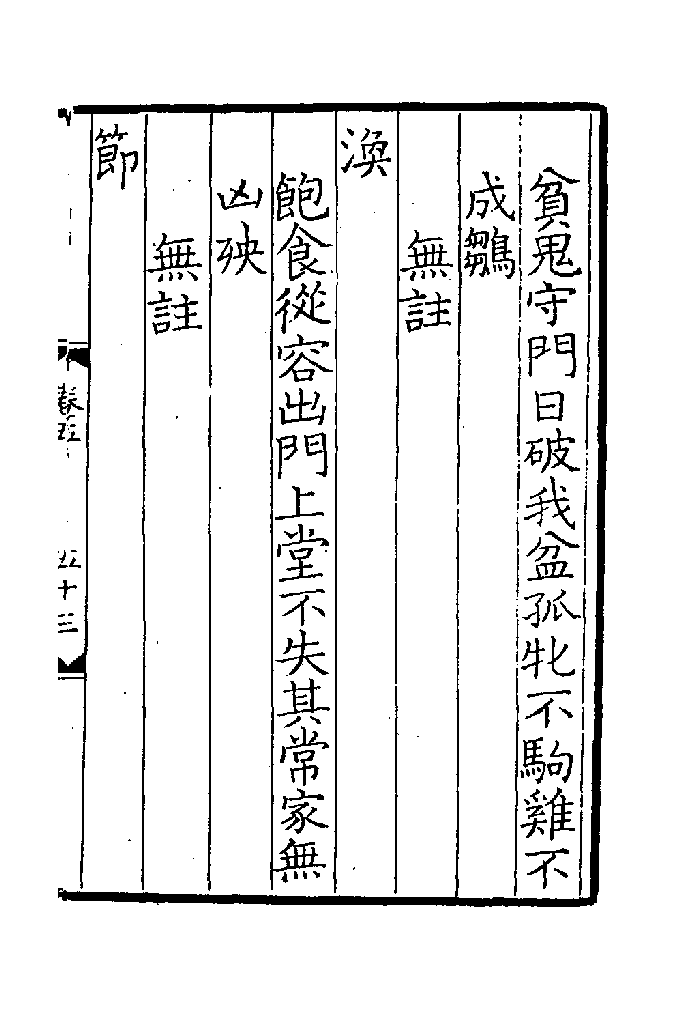 貧鬼守門日破我盆孤牝不駒雞不
成鶵
無註
渙
飽食從容出門上堂不失其常家無
凶殃
無註
節
卷五
五十三